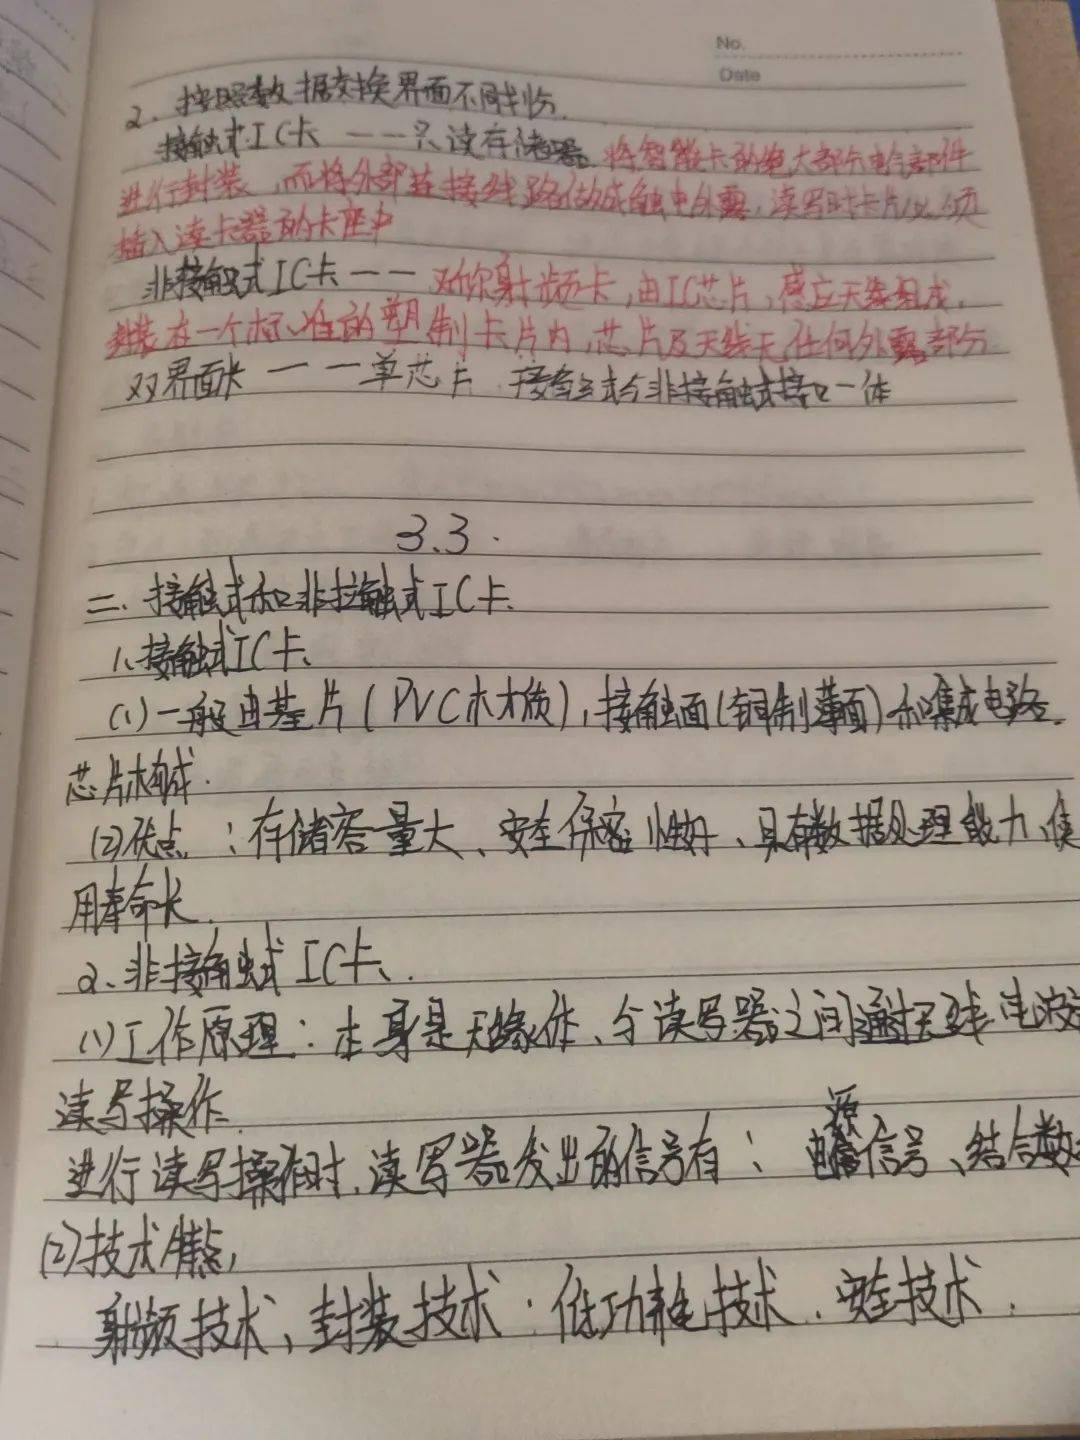 No.
Date
2、按照数据交换界面不同划分.
接触式IC卡 一一只读存储器 将智能卡的绝大部分电气部件
进行封装,而将外部连接线路做成触电外露,读写时卡片必须
插入读卡器的卡座中
非接触式IC卡一一 又称射频卡,由IC芯片,感应天线组成,
封装在一个标准的塑制卡片内,芯片及天线无任何外露部分
双界面卡 一一单芯片 接触式与非接触式接口一体
3.3.
二、接触式和非接触式IC卡、
1、接触式IC卡、
(1)一般由基片(PVC材质),接触面(铜制薄面)和集成电路
芯片构成.
(2)优点:存储容量大、安全保密性好、具有数据处理能力、使
用寿命长
2、非接触式IC卡、
(1)工作原理:本身是无源体、与读写器之间通过无线电波
读写操作
进行读写操作时,读写器发出的信号有:电源信号、结合数
(2)技术特点,
射频技术、封装技术、低功耗技术、安全技术.